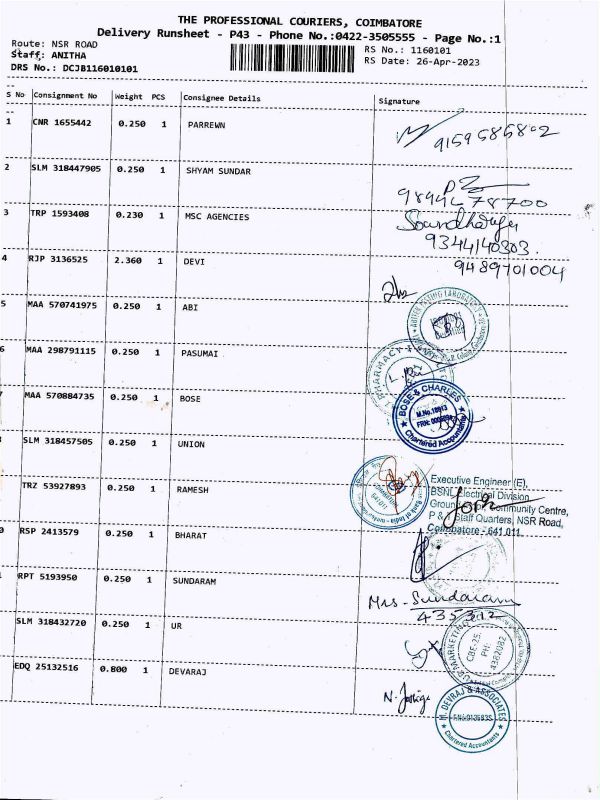 THE PROFESSIONAL COURIERS, COIMBATORE
Delivery Runsheet - P43 - Phone No.:0422-3505555 - Page No.:1
Route: NSR ROAD
Staff: ANITHA
DRS No.: DCJB116010101
RS No.: 1160101
RS Date: 26-Apr-2023
S No Consignment No Weight PCS Consignee Details Signature
1 CNR 1655442 0.250 1 PARREWN
9159585802
2 SLM 318447905 0.250 1 SHYAM SUNDAR
78700
3 TRP 1593408 0.230 1 MSC AGENCIES
9344140303.
4 RJP 3136525 2.360 1 DEVI
9489701004
5 MAA 570741975 0.250 1 ABI
6 MAA 298791115 0.250 1 PASUMAI
PHARMACY
MAA 570884735 0.250 1 BOSE
BOSE & CHARLES
Chartered Accountants
SLM 318457505 0.250 1 UNION
TRZ 53927893 0.250 1 RAMESH
Executive Engineer (E),
BSNL Electrical Division
Community Centre,
Staff Quarters, NSR Road,
Coimbatore - 641 011.
0 RSP 2413579 0.250 1 BHARAT
RPT 5193950 0.250 1 SUNDARAM
Mrs. Sundaram
435312
SLM 318432720 0.250 1 UR
MARKETING
CBE-25.
PH:
4362082
EDQ 25132516 0.800 1 DEVARAJ
M. DEVRAJ & ASSOCIATES
Chartered Accountants